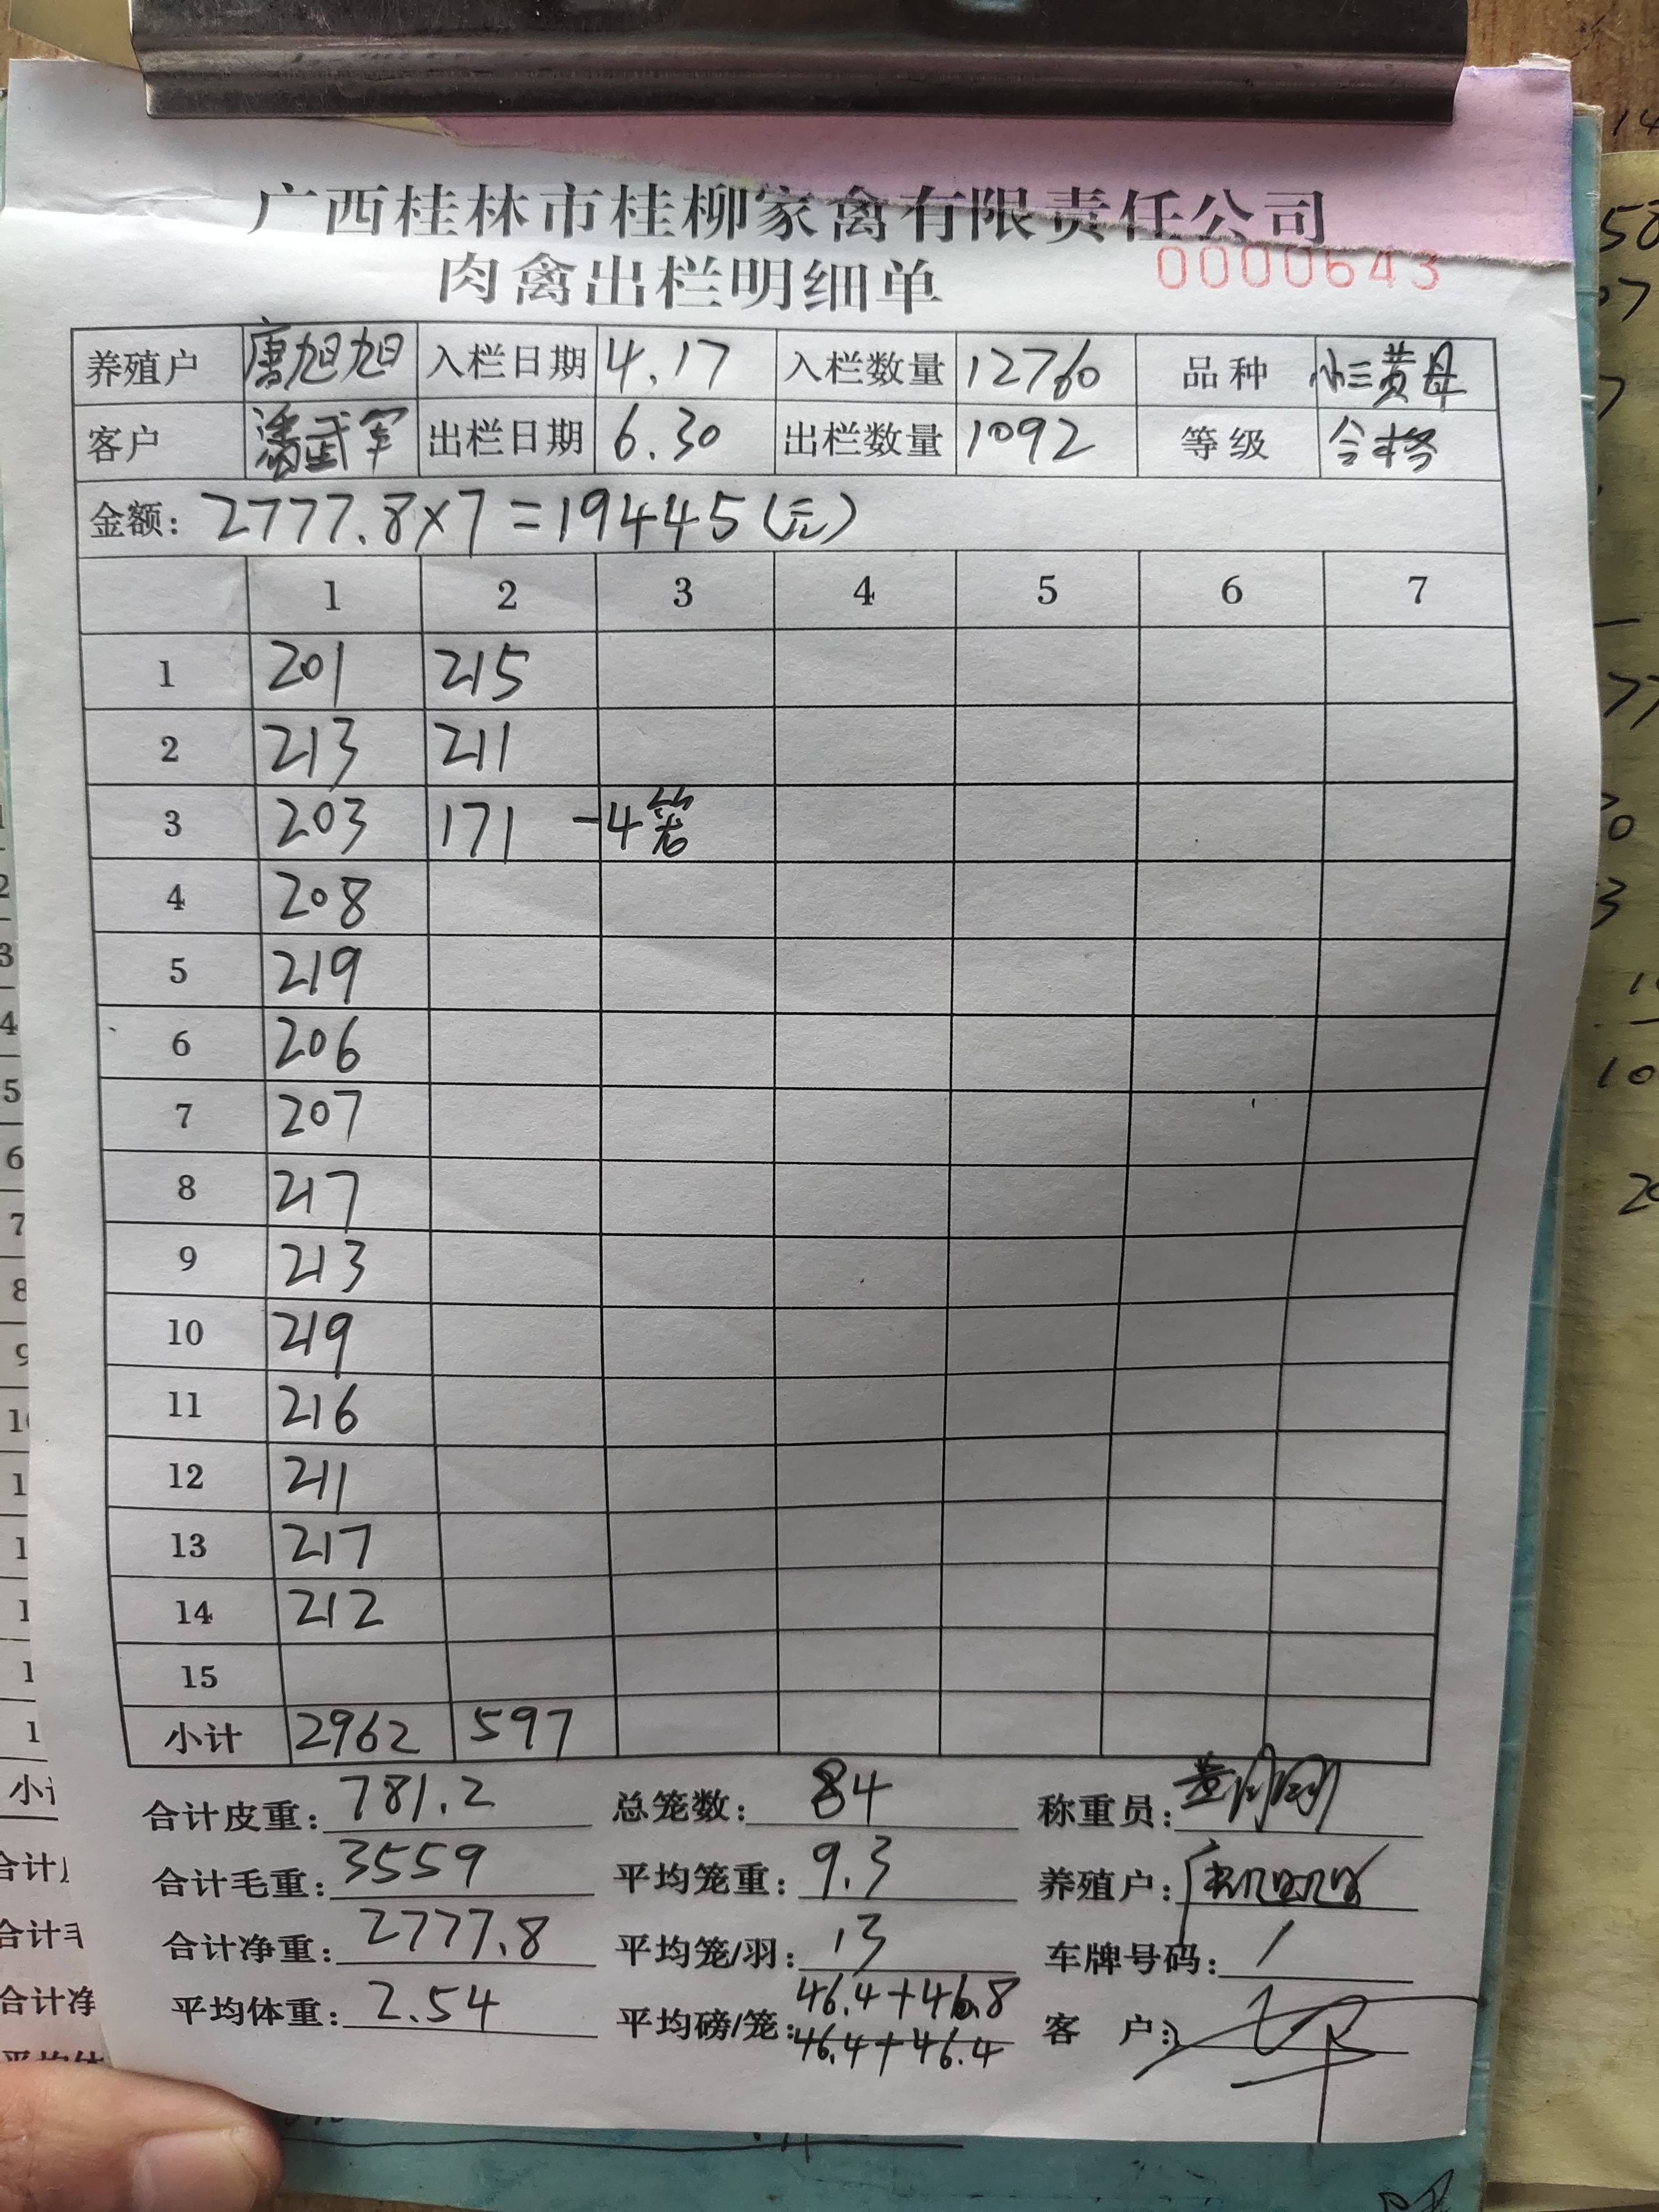 广西桂林市桂柳家禽有限责任公司
肉禽出栏明细单 0000643
养殖户 唐旭旭 入栏日期 4.17 入栏数量 12760 品种 小三黄母
客户 潘武军 出栏日期 6.30 出栏数量 1092 等级 合格
金额: 2777.8×7=19445(元)
1 2 3 4 5 6 7
1 201 215
2 213 211
3 203 171 -4笼
4 208
5 219
6 206
7 207
8 217
9 213
10 219
11 216
12 211
13 217
14 212
15
小计 2962 597
合计皮重: 781.2 总笼数: 84 称重员:
合计毛重: 3559 平均笼重: 9.3 养殖户: 唐旭旭
合计净重: 2777.8 平均笼/羽: 13 车牌号码: /
平均体重: 2.54 平均磅/笼: 46.4+46.8 客 户:
46.4+46.4